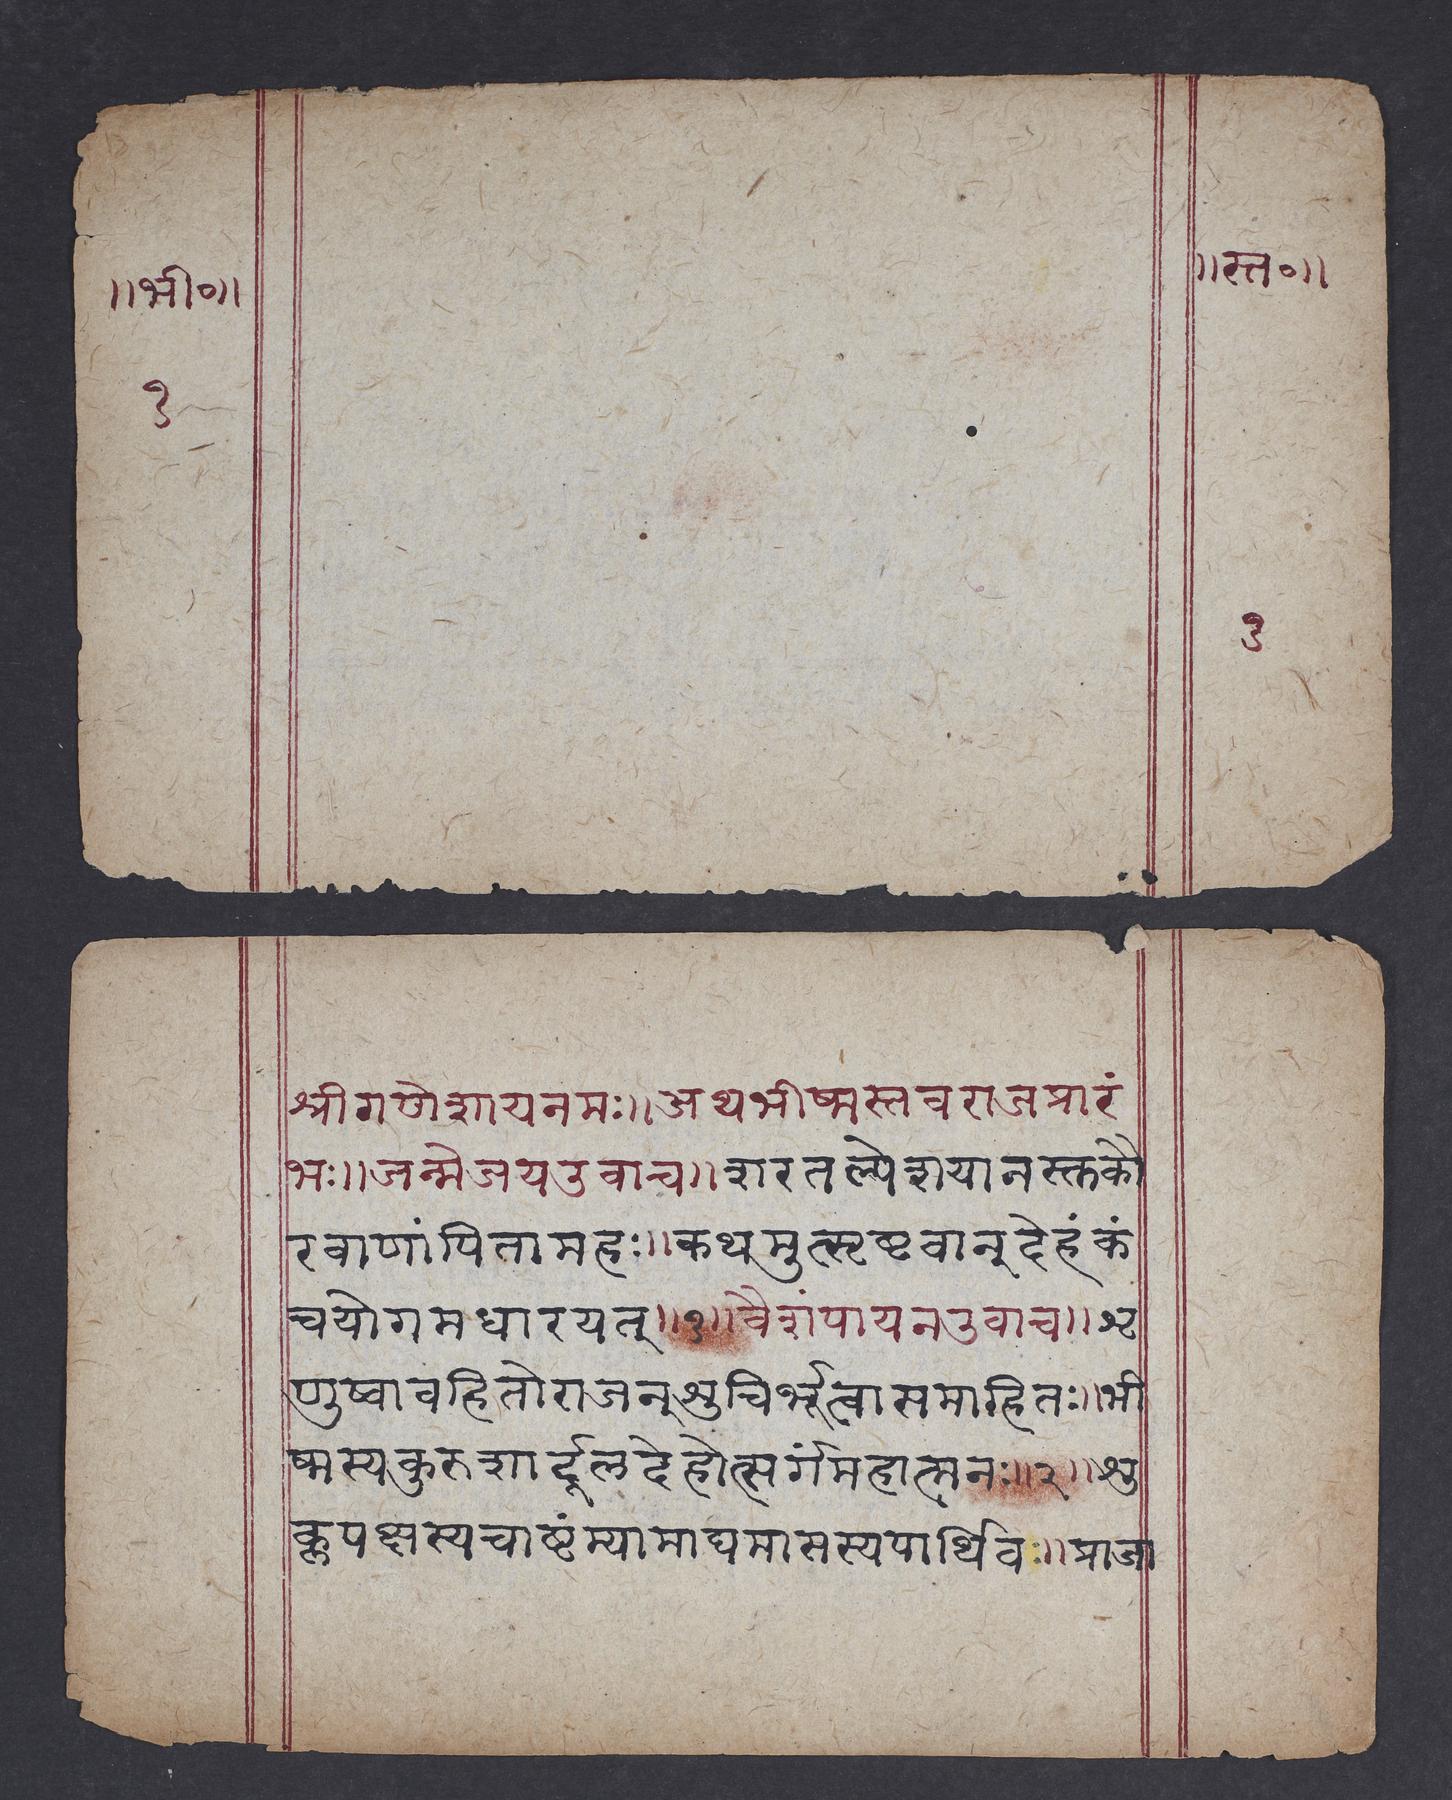 ॥भी०॥
॥स्त०॥
१
१
श्रीगणेशायनमः॥अथभीष्मस्तवराजप्रारं
भः॥जन्मेजयउवाच॥शरतल्पेशयानस्तकौ
रवाणांपितामहः॥कथमुत्सृष्टवान्देहंकं
चयोगमधारयत्॥१॥वैशंपायनउवाच॥शृ
णुष्वावहितोराजन्शुचिर्भूत्वासमाहितः॥भी
ष्मस्यकुरुशार्दूलदेहोत्सर्गंमहात्मनः॥२॥शु
क्लपक्षस्यचाष्टंम्यामाघमासस्यपार्थिवः॥प्राजा